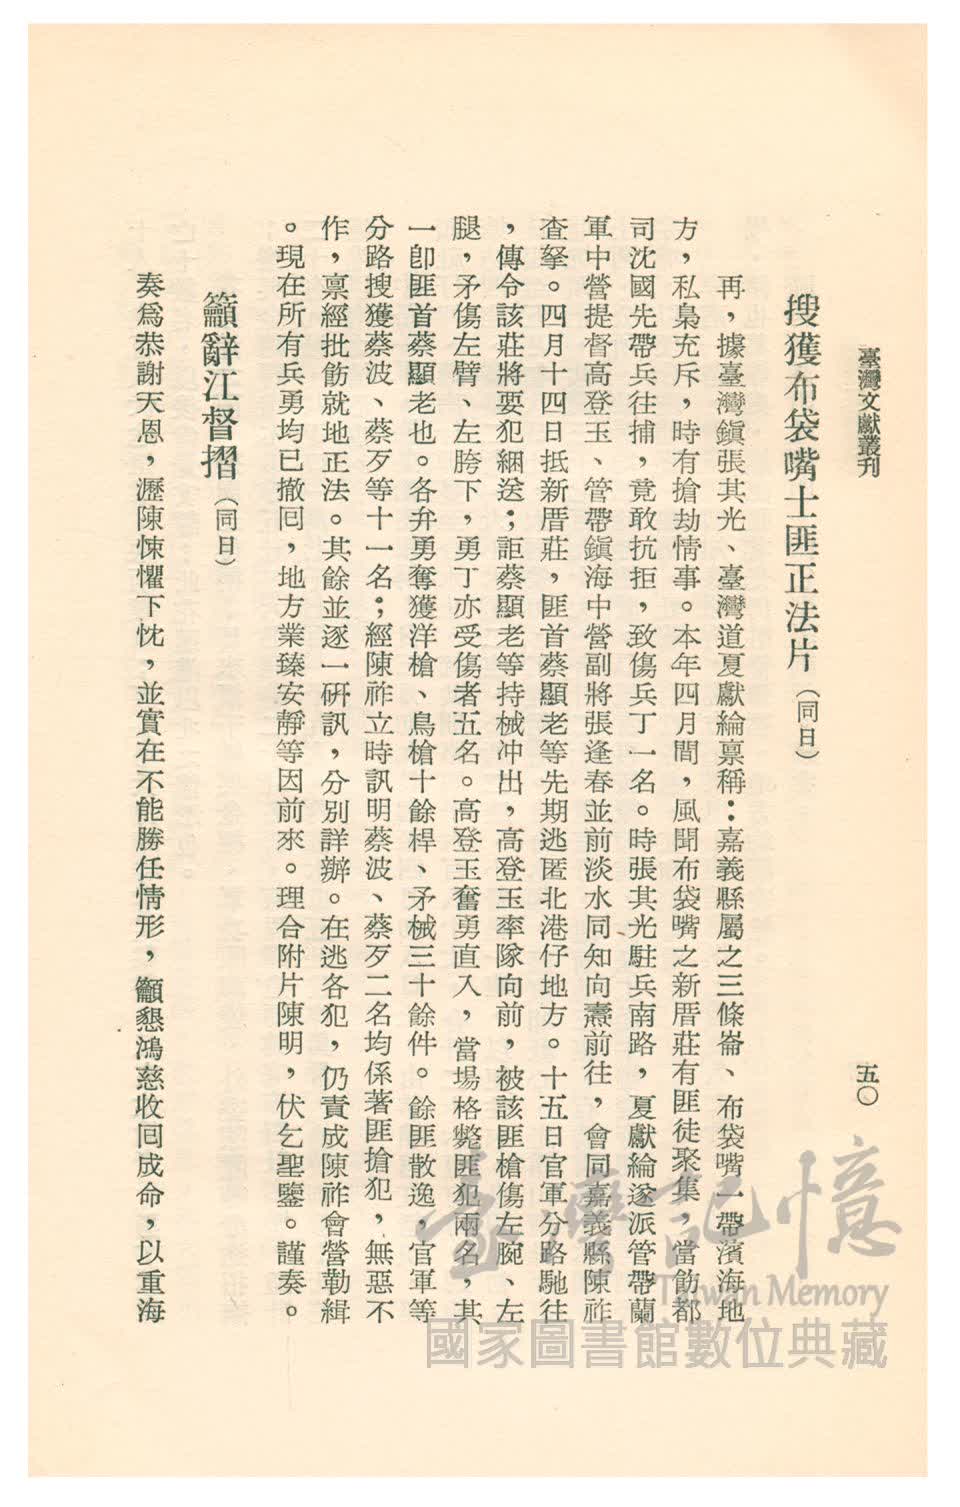 臺灣文獻叢刊
五〇
搜獲布袋嘴土匪正法片（同日）
再，據臺灣鎭張其光、臺灣道夏獻綸稟稱：嘉義縣屬之三條崙、布袋嘴一帶濱海地
方，私梟充斥，時有搶劫情事。本年四月間，風聞布袋嘴之新厝莊有匪徒聚集，當飭都
司沈國先帶兵往捕，竟敢抗拒，致傷兵丁一名。時張其光駐兵南路，夏獻綸遂派管帶蘭
軍中營提督高登玉、管帶鎭海中營副將張逢春並前淡水同知向燾前往，會同嘉義縣陳祚
查拏。四月十四日抵新厝莊，匪首蔡顯老等先期逃匿北港仔地方。十五日官軍分路馳往
，傳令該莊將要犯綑送；詎蔡顯老等持械冲出，高登玉率隊向前，被該匪槍傷左腕、左
腿，矛傷左臂、左胯下，勇丁亦受傷者五名。高登玉奮勇直入，當場格斃匪犯兩名，其
一卽匪首蔡顯老也。各弁勇奪獲洋槍、鳥槍十餘桿、矛械三十餘件。餘匪散逸，官軍等
分路搜獲蔡波、蔡歹等十一名；經陳祚立時訊明蔡波、蔡歹二名均係著匪搶犯，無惡不
作，稟經批飭就地正法。其餘並逐一研訊，分別詳辦。在逃各犯，仍責成陳祚會營勒緝
。現在所有兵勇均已撤囘，地方業臻安靜等因前來。理合附片陳明，伏乞聖鑒。謹奏。
籲辭江督摺（同日）
奏爲恭謝天恩，瀝陳悚懼下忱，並實在不能勝任情形，籲懇鴻慈收囘成命，以重海
臺灣記憶
Taiwan Memory
國家圖書館數位典藏